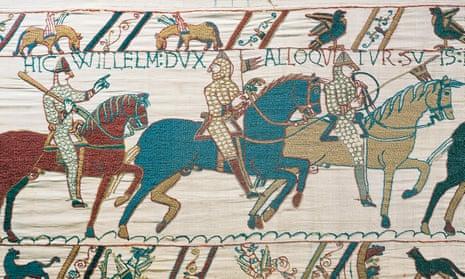 HIC WILLELM: DVX ALLOQVITVR SVIS: